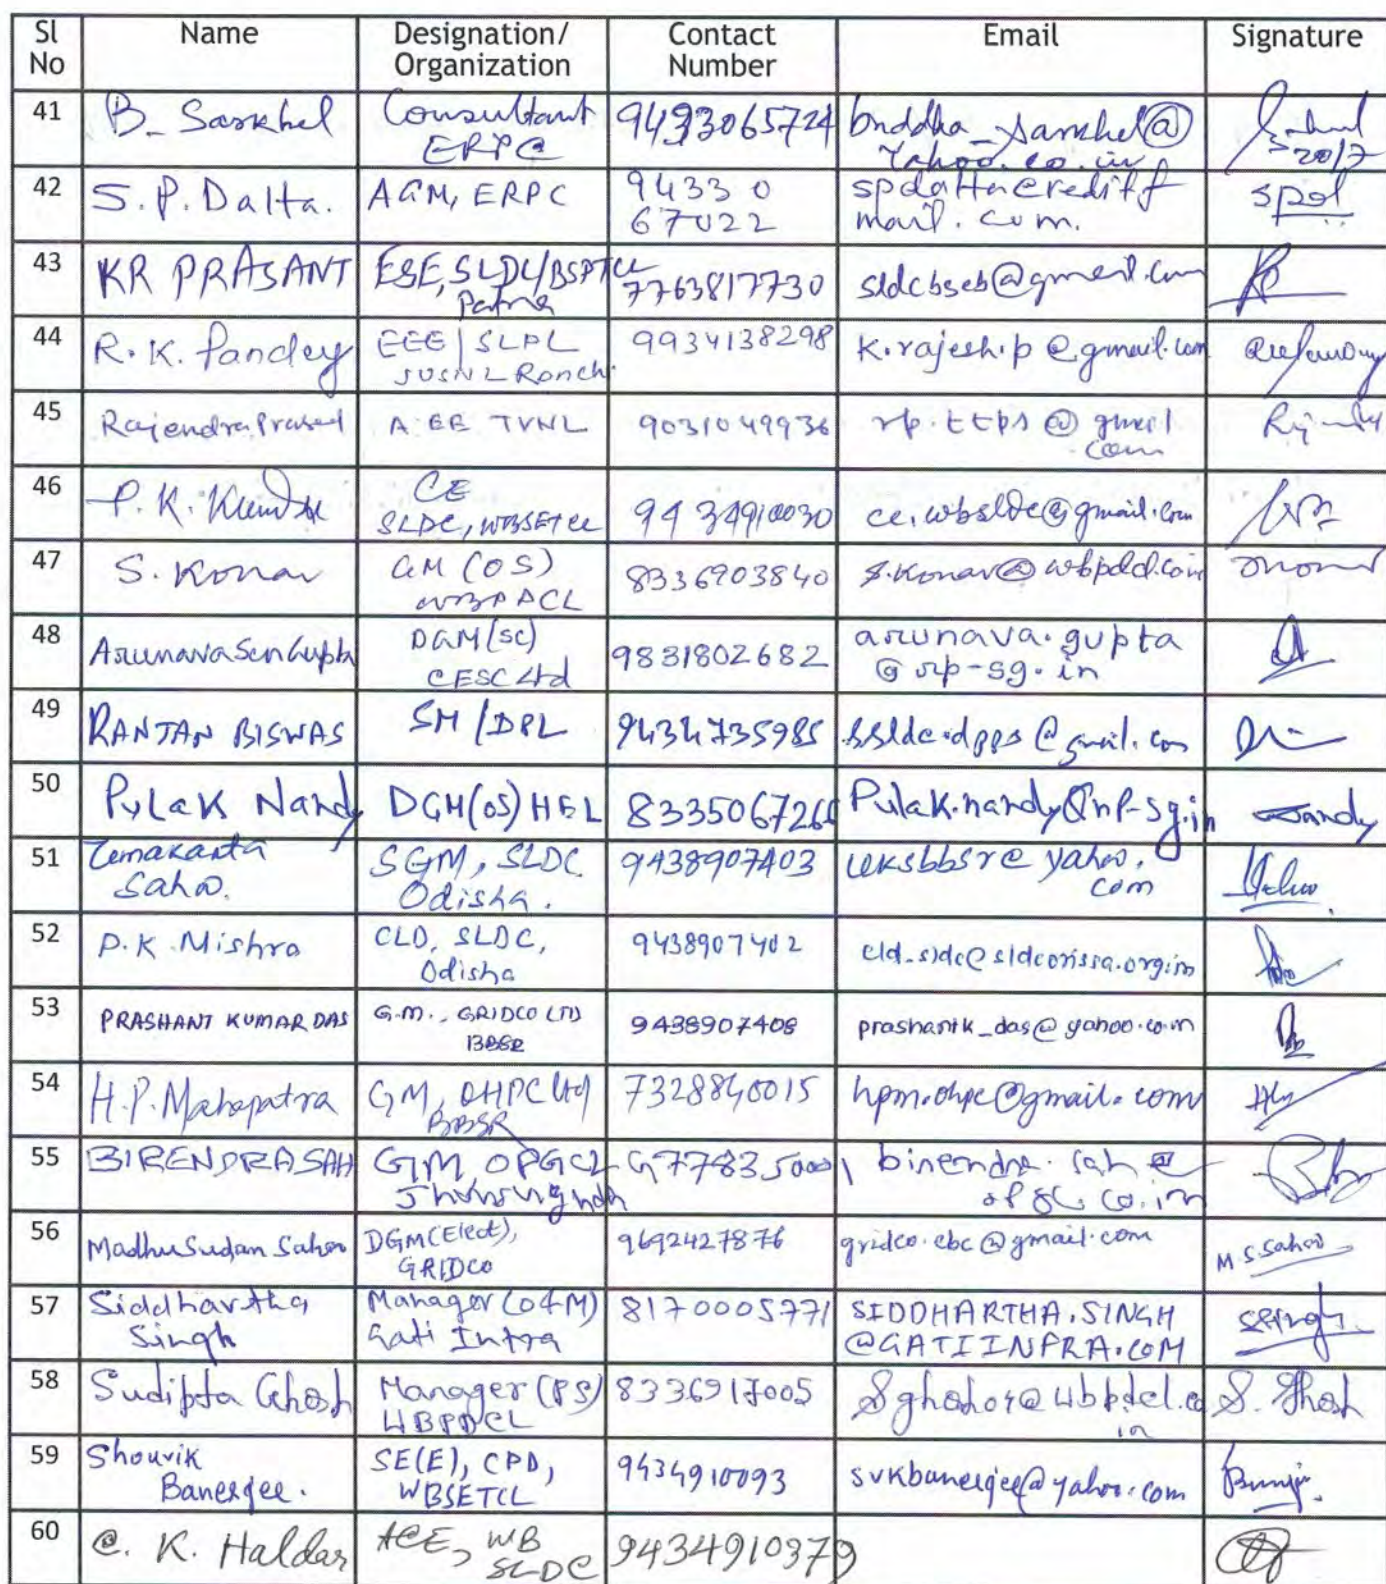 Sl No Name Designation/ Organization Contact Number Email Signature
41 B. Sarkhel Consultant ERPC 9433065724 buddha_sarkhel@ yahoo.co.in
42 S.P. Datta. AGM, ERPC 94330 67022 spdatta@rediff mail.com.
43 KR PRASANT ESE, SLDC/BSPTCL Patna 7763817730 sldcbseb@gmail.com
44 R.K. Pandey EEE/SLDC JUSNL Ranchi 9934138298 k.rajesh.p@gmail.com
45 Rajendra Prasad A EE TVNL 9031049936 rp.ttps@gmail .com
46 P.K. Kundu CE SLDC, WBSETCL 9434910030 ce.wbsldc@gmail.com
47 S. Konar GM (OS) WBPDCL 8336903840 s.konar@wbpdcl.co.in
48 Arunava Sen Gupta DGM(SC) CESC Ltd 9831802682 arunava.gupta @rp-sg.in
49 RANJAN BISWAS SM/DPL 9434735985 ssldc.dpps@gmail.com
50 Pulak Nandy DGM(OS) HEL 8335067266 Pulak.nandy@rp-sg.in Nandy
51 Umakanta Sahoo. SGM, SLDC Odisha. 9438907403 uksbbsr@yahoo. com
52 P.K. Mishra CLD, SLDC, Odisha 9438907402 cld_sldc@sldcorissa.org.in
53 PRASHANT KUMAR DAS G.M., GRIDCO LTD BBSR 9438907408 prashantk_das@yahoo.co.in
54 H.P. Mahapatra GM, OHPC Ltd BBSR 7328840015 hpm.ohpc@gmail.com
55 BIRENDRA SAH GM OPGCL Jharsuguda birendra.sah@ opgc.co.in
56 Madhusudan Sahoo DGM(Elect), GRIDCO 9692427876 gridco.ebc@gmail.com M.S.Sahoo
57 Siddhartha Singh Manager (O&M) Gati Infra 8170005771 SIDDHARTHA.SINGH @GATIINFRA.COM SSingh
58 Sudipta Ghosh Manager (PS) WBPDCL 8336917005 S. Ghosh
59 Shouvik Banerjee. SE(E), CPD, WBSETCL 9434910093 svkbanerjee@yahoo.com
60 C. K. Haldar ACE, WB SLDC 9434910379